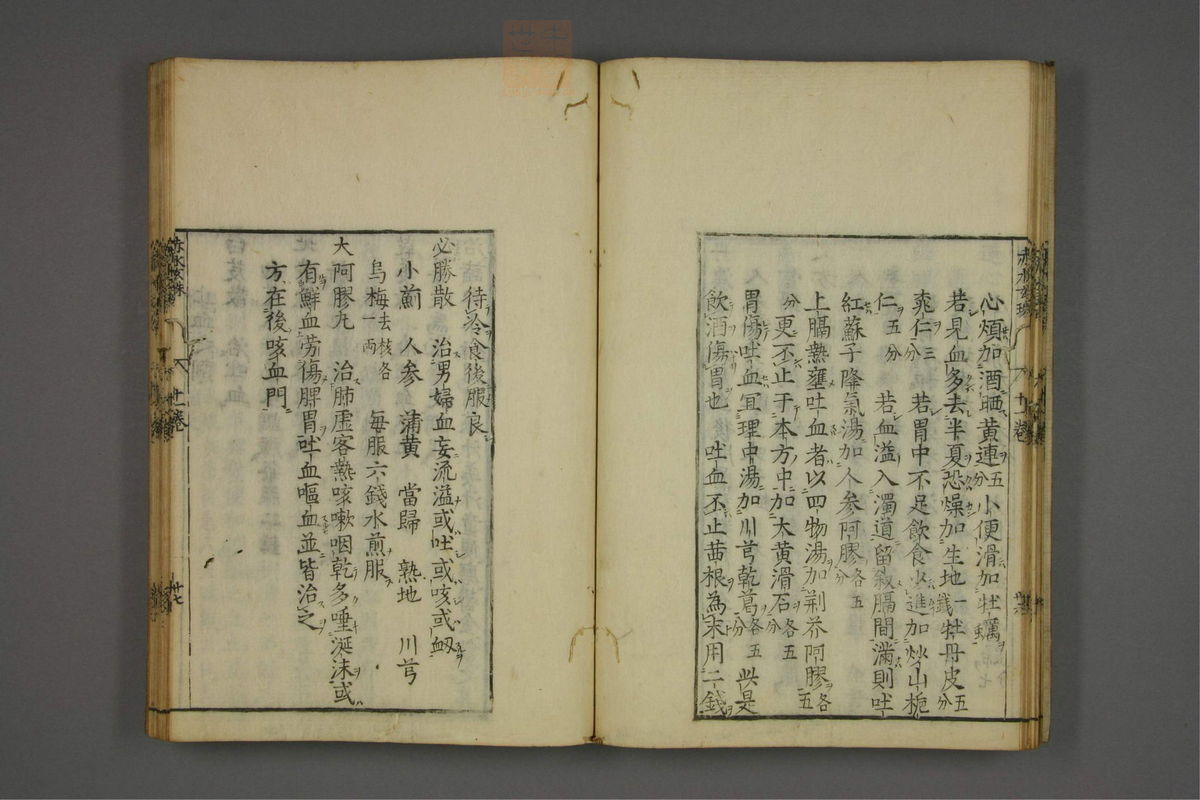 心煩加酒晒黃連五分小便滑加牡蠣
若見血多去半夏恐燥加生地一錢牡丹皮五分
桃仁三分若胃中不足飲食少進加炒山梔
仁五分 若血溢入濁道留聚膈間滿則吐
紅蘇子降氣湯加人參阿膠各五分
上膈熱壅吐血者以四物湯加荊芥阿膠各五
分更不止于本方中加大黃滑石各五分
胃傷吐血宜理中湯加川芎乾葛各五分此是
飲酒傷胃也 吐血不止茜根為末用二錢
待冷食後服良
必勝散 治男婦血妄流溢或吐或咳或衂
小薊 人參 蒲黃 當歸 熟地 川芎
烏梅去核各一兩 每服六錢水煎服
大阿膠丸 治肺虛客熱咳嗽咽乾多唾涎沫或
有鮮血勞傷脾胃吐血嘔血並皆治之
方在後咳血門
赤水玄珠
十一卷
赤水玄珠
廿七